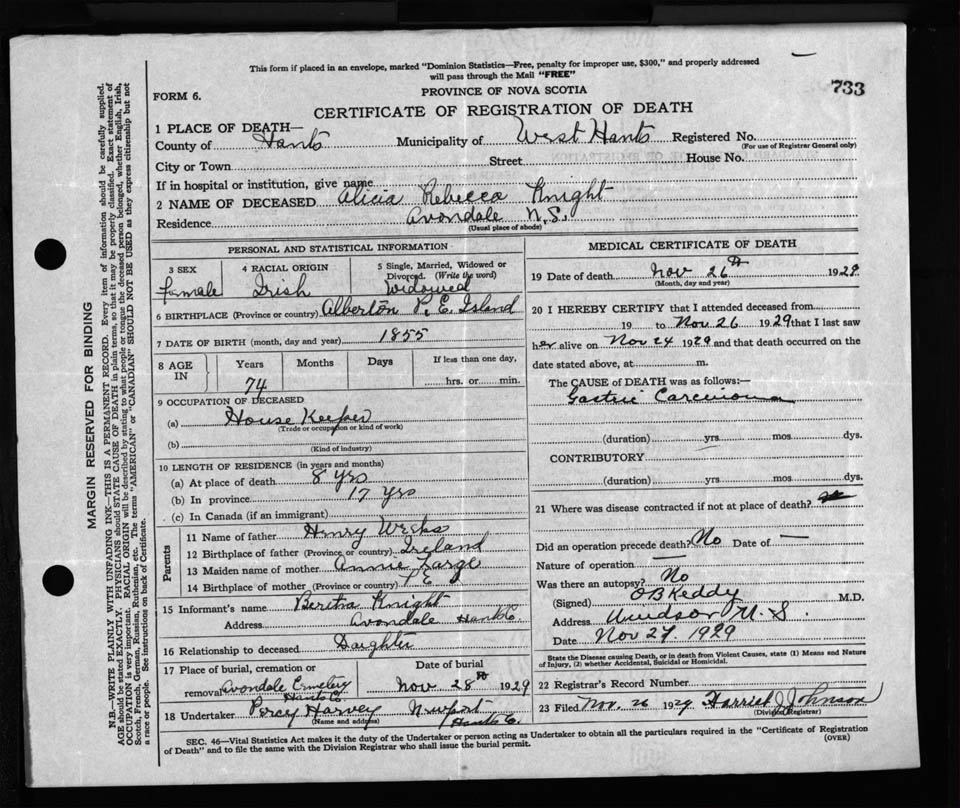 This form if placed in an envelope, marked "Dominion Statistics—Free, penalty for improper use, $300," and properly addressed
will pass through the Mail "FREE"
733
FORM 6.
PROVINCE OF NOVA SCOTIA
CERTIFICATE OF REGISTRATION OF DEATH
1 PLACE OF DEATH—
County of Hants Municipality of West Hants Registered No.
(For use of Registrar General only)
City or Town Street House No.
If in hospital or institution, give name
2 NAME OF DECEASED Alicia Rebecca Knight
Residence Avondale N.S.
(Usual place of abode)
PERSONAL AND STATISTICAL INFORMATION
3 SEX 4 RACIAL ORIGIN 5 Single, Married, Widowed or
Divorced. (Write the word)
Female Irish Widowed
6 BIRTHPLACE (Province or country) Alberton P. E. Island
7 DATE OF BIRTH (month, day and year) 1855
8 AGE IN Years Months Days If less than one day,
74 hrs. or min.
9 OCCUPATION OF DECEASED
(a) House Keeper
(Trade or occupation or kind of work)
(b)
(Kind of industry)
10 LENGTH OF RESIDENCE (in years and months)
(a) At place of death 8 yrs
(b) In province 17 yrs
(c) In Canada (if an immigrant)
Parents
11 Name of father Henry
12 Birthplace of father (Province or country) Ireland
13 Maiden name of mother Annie
14 Birthplace of mother (Province or country) P E I
15 Informant's name Bertha Knight
Address Avondale Hants Co.
16 Relationship to deceased Daughter
17 Place of burial, cremation or Date of burial
removal Avondale Cemetery Nov 28th 1929
Hants Co.
18 Undertaker Percy Harvey Newport
(Name and address) Hants Co.
MEDICAL CERTIFICATE OF DEATH
19 Date of death Nov 26th 1929
(Month, day and year)
20 I HEREBY CERTIFY that I attended deceased from
19 to Nov. 26 1929 that I last saw
her alive on Nov 24 1929 and that death occurred on the
date stated above, at m.
The CAUSE of DEATH was as follows:—
Gastric Carcinoma
(duration) yrs mos dys.
CONTRIBUTORY
(duration) yrs mos dys.
21 Where was disease contracted if not at place of death?
Did an operation precede death? No Date of —
Nature of operation —
Was there an autopsy? No
(Signed) O B Keddy M.D.
Address Windsor N.S.
Date Nov 27. 1929
State the Disease causing Death, or in death from Violent Causes, state (1) Means and Nature
of Injury, (2) whether Accidental, Suicidal or Homicidal.
22 Registrar's Record Number
23 Filed Nov. 26 1929 Harriet J. Johnson
(Division Registrar)
SEC. 46—Vital Statistics Act makes it the duty of the Undertaker or person acting as Undertaker to obtain all the particulars required in the "Certificate of Registration
of Death" and to file the same with the Division Registrar who shall issue the burial permit.
(OVER)
MARGIN RESERVED FOR BINDING
N.B.—WRITE PLAINLY WITH UNFADING INK—THIS IS A PERMANENT RECORD. Every item of information should be carefully supplied.
AGE should be stated EXACTLY. PHYSICIANS should STATE CAUSE OF DEATH in plain terms, so that it may be properly classified. Exact statement of
OCCUPATION is very important. RACIAL ORIGIN will be described by stating to what people or tongue the deceased person belonged, whether English, Irish,
Scotch, French, German, Russian, Ruthenian, etc. The terms "AMERICAN" or "CANADIAN" SHOULD NOT BE USED as they express citizenship but not
a race or people. See instructions on back of Certificate.